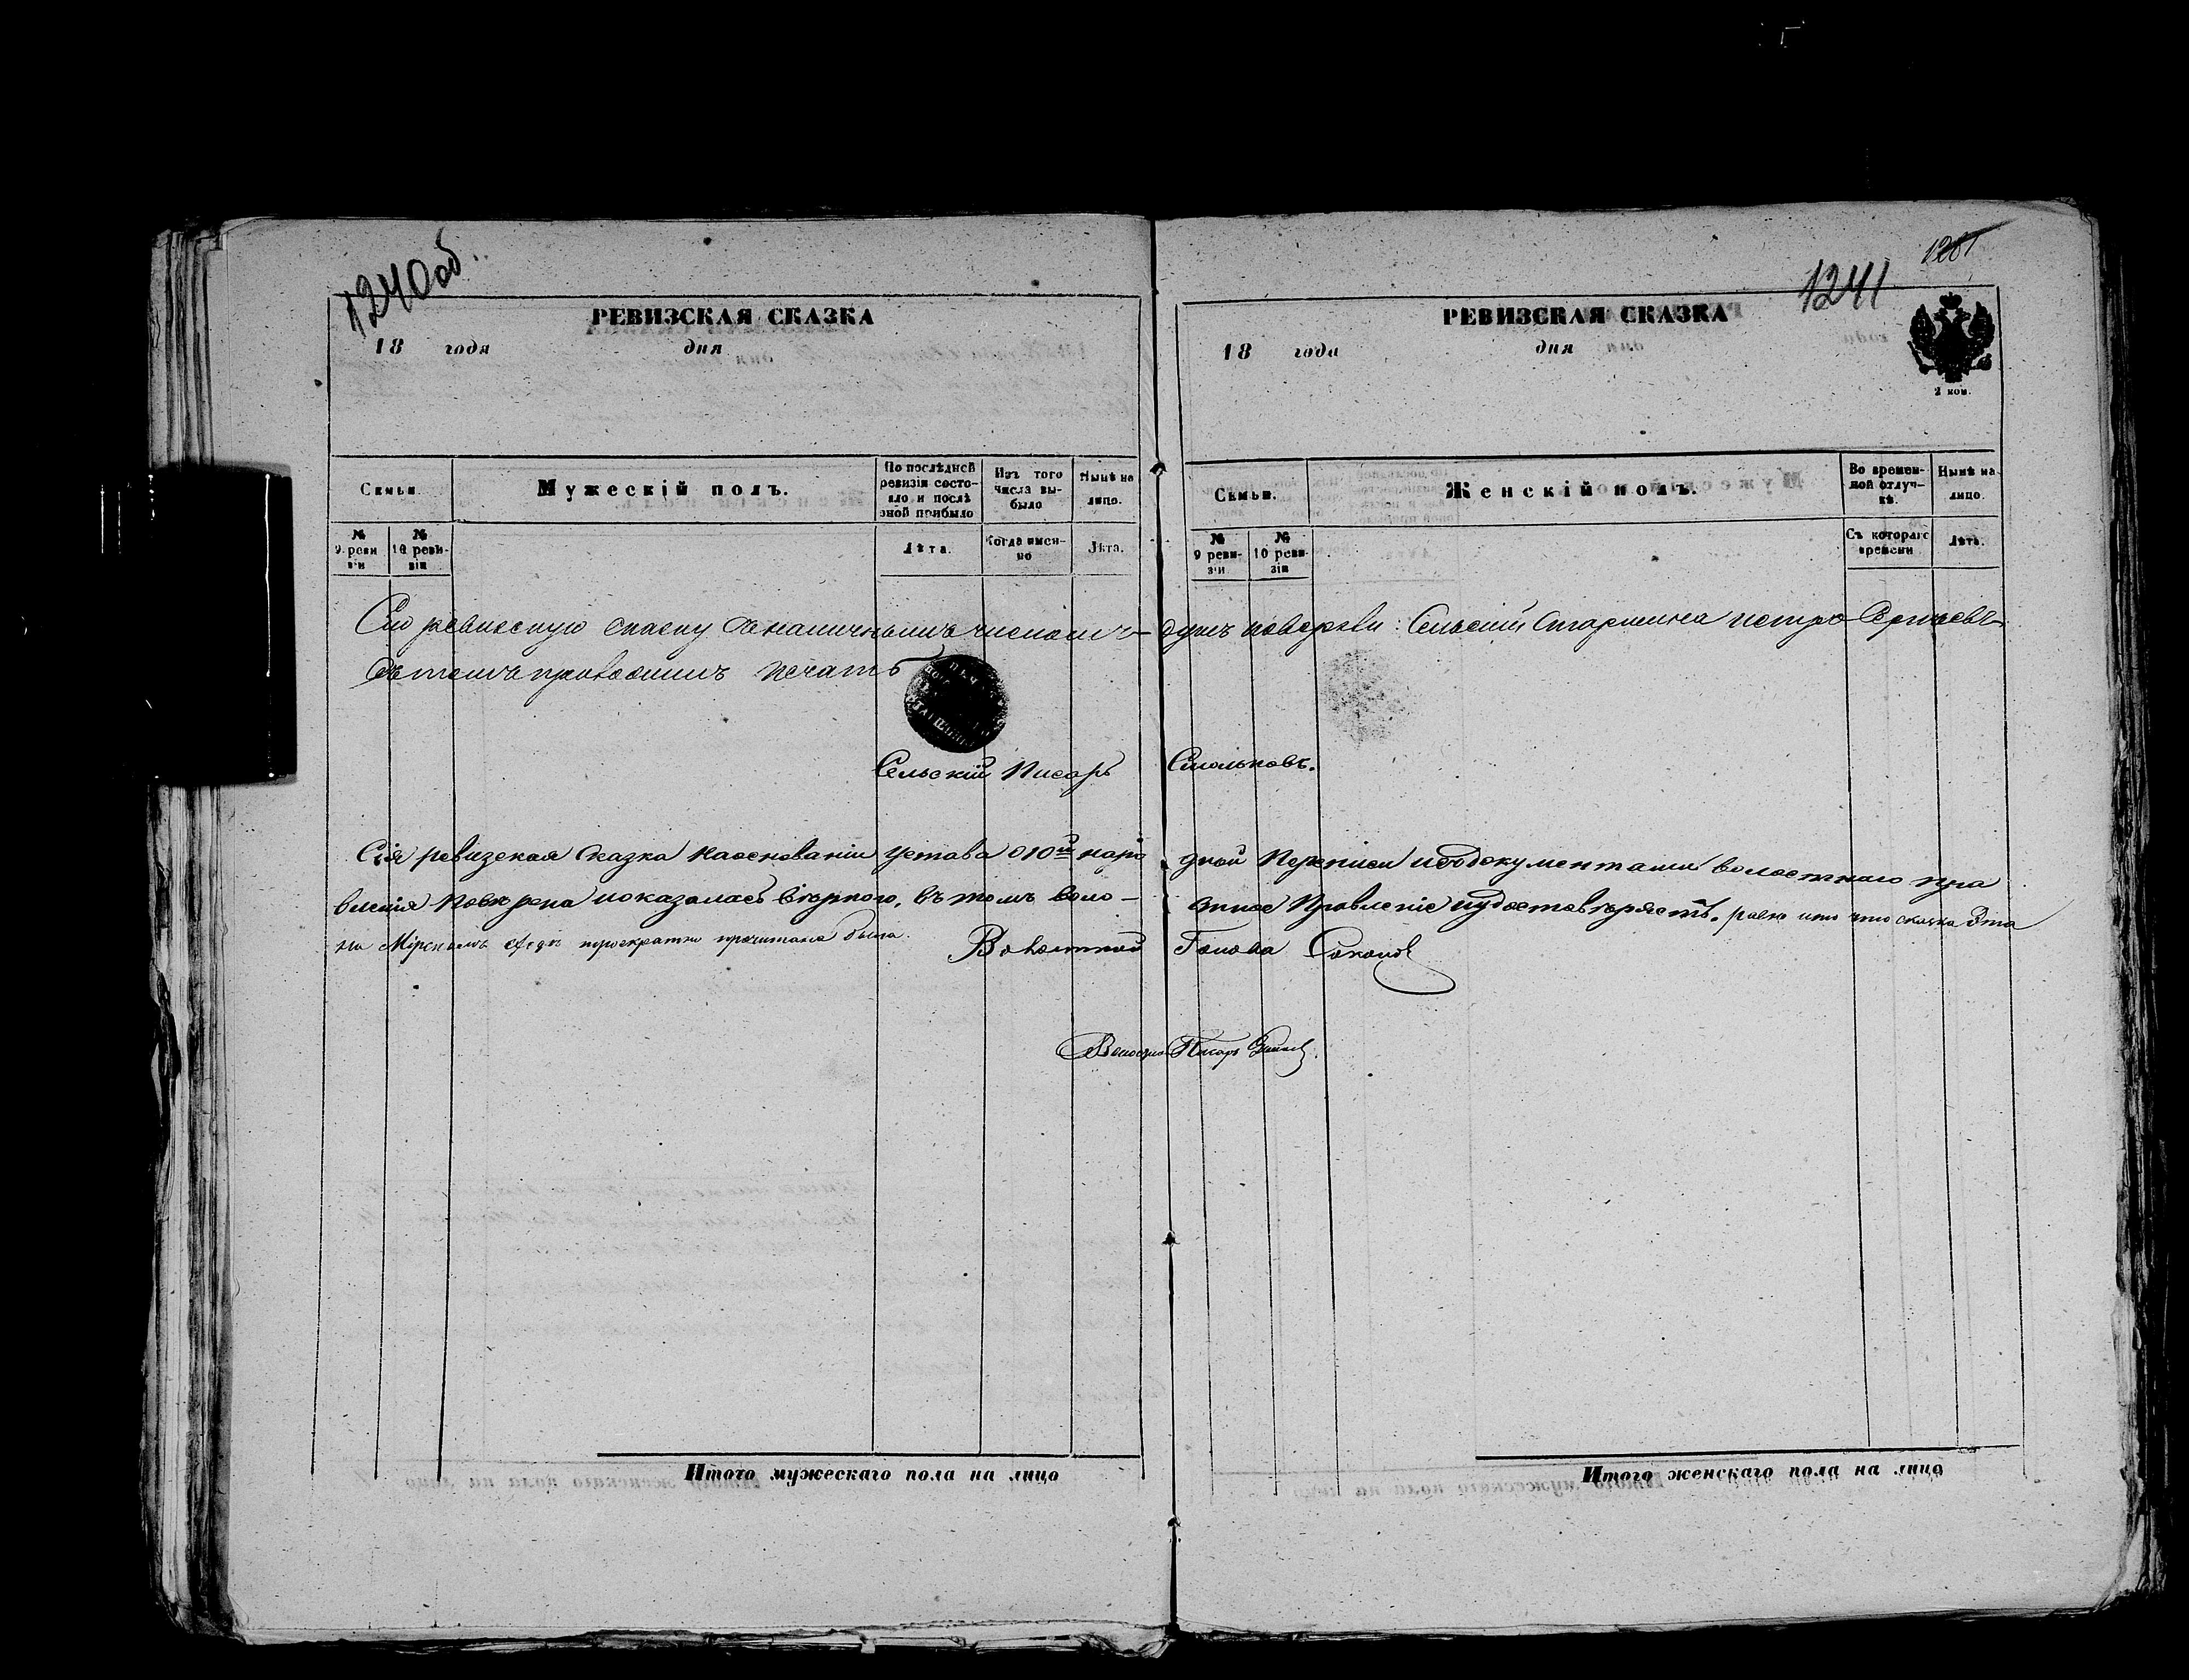 1240об.
РЕВИЗСКАЯ СКАЗКА
18 года дня
Семьи.
Мужескій полъ.
По послѣдней ревизіи состояло и послѣ оной прибыло
Изъ того числа выбыло
Нынѣ на лицо.
№ 9 ревизіи
№ 10 ревизіи
Лѣта.
Когда именно
Лѣта.
1241
РЕВИЗСКАЯ СКАЗКА
18 года дня
2 коп.
Семьи.
Женскій полъ.
Во временной отлучкѣ.
Нынѣ на лицо.
№ 9 ревизіи
№ 10 ревизіи
Съ котораго времени
Лѣта.
Сію ревизскую скаску съ наличнымъ числомъ душъ поверялъ: Сельскій Старшина петръ Сергѣевъ
въ томъ приложилъ печать
Сельскій Писарь Смольковъ.
Сія ревизская Сказка на основаніи Устава о 10й народной Переписи и по документами волостнаго пра
вленія Повѣрена и оказалась вѣрною, въ томъ волостное Правленіе и удостовѣряетъ. равно и то что сказка эта
на Мірскомъ сходѣ троекратно прочитана была.
Волостной Голова Соколов
Волостной Писарь
Итого мужескаго пола на лицо
Итого женскаго пола на лицо